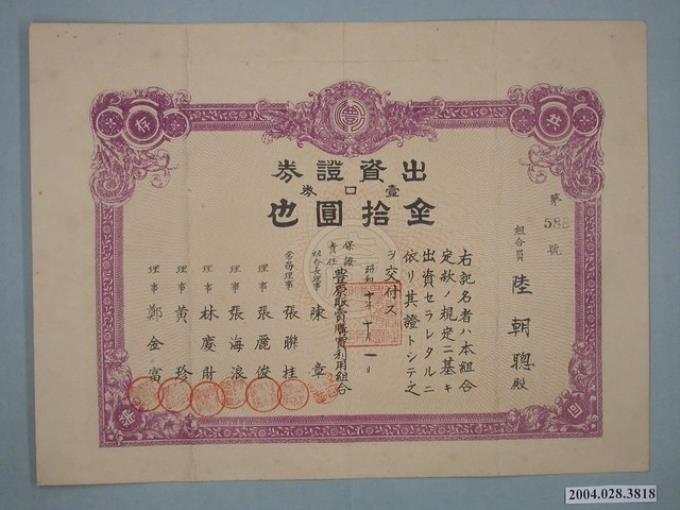 共
存
同
榮
出資證券
壹口券
金拾圓也
第588號
組合員 陸朝聰殿
右記名者ハ本組合
定款ノ規定ニ基キ
出資セラレタルニ
依リ其證トシテ之
ヲ交付ス
昭和十年十月一日
保證責任豊原販賣購買利用組合
組合長理事 陳章
常務理事 張聯桂
理事 張麗俊
理事 張海浪
理事 林慶財
理事 黃珍
理事 鄭金富
2004.028.3818